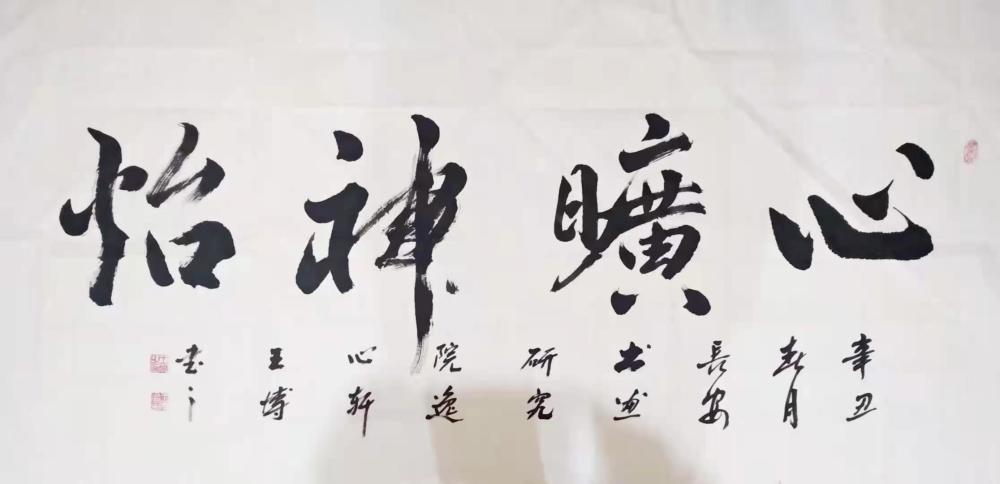 心曠神怡
辛丑
春月
長安
书画
研究
院逸
心轩
王博
书之